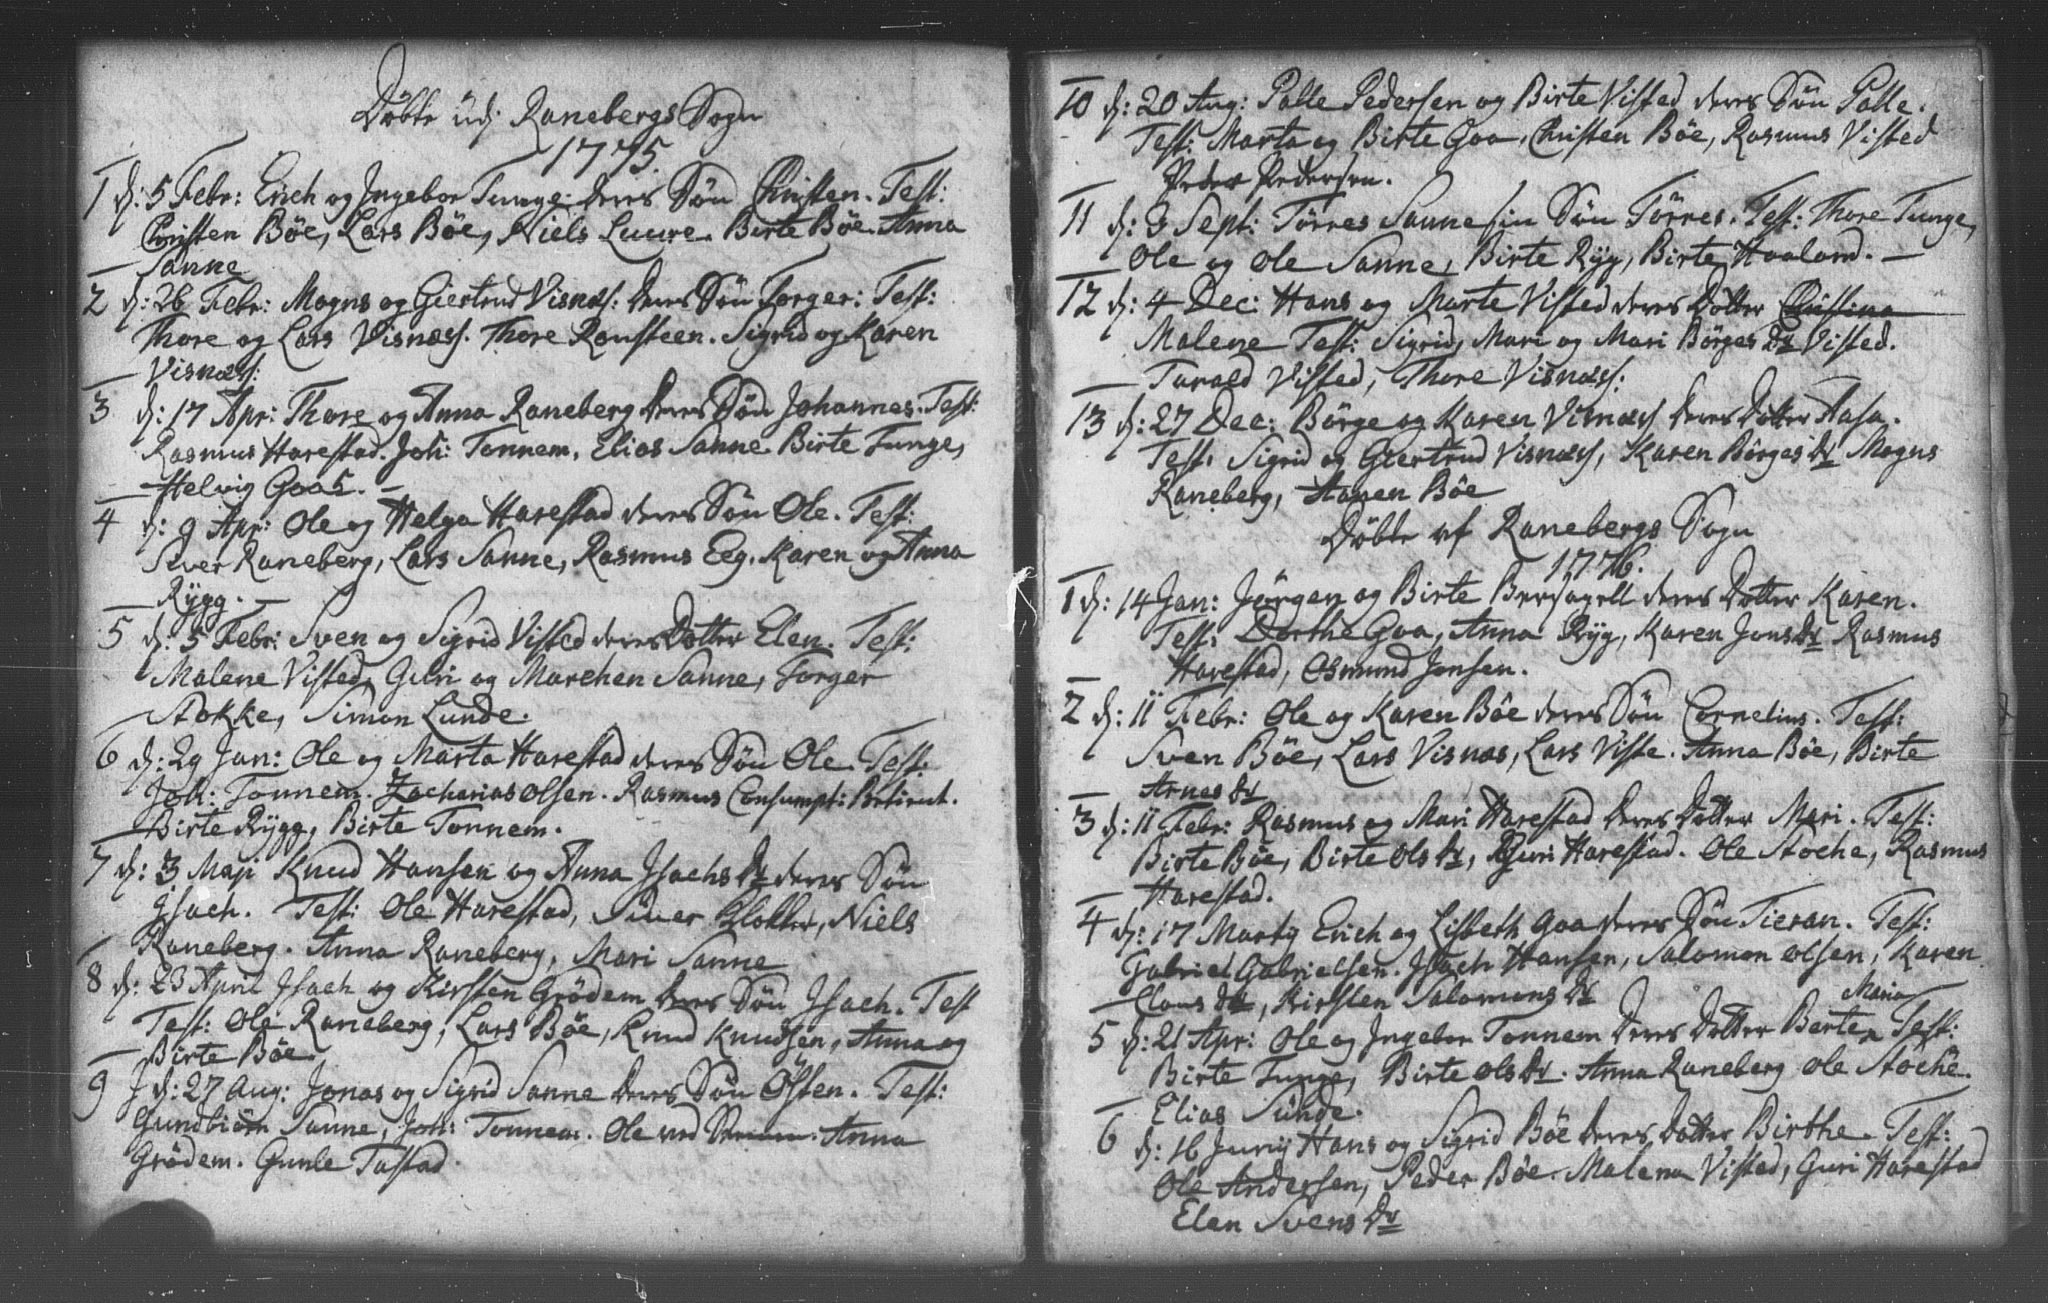 Döbte udj Ranebergs Sogn
1775.
1 d: 5 Febr: Erich og Ingebor Tunge deres Sön Christen. Test:
Christen Böe, Lars Böe, Niels Luure. Birte Böe. Anna
Sanne
2 d: 26 Febr: Mogns og Giertrud Visnæs: deres Sön Torger: Test:
Thore og Lars Visnæss. Thore Ronsteen. Sigrid og Karen
Visnæss:
3 d: 17 Apr: Thore og Anna Raneberg deres Sön Johannes. Test:
Rasmus Harestad. Joh: Tonnem, Elias Sanne. Birte Tunge,
Helvig Goas. —
4 d: 9 Apr: Ole og Helga Harestad deres Sön Ole. Test:
Siver Raneberg, Lars Sanne, Rasmus Eeg. Karen og Anna
Rygg. —
5 d: 5 Febr: Sven og Sigrid Visted deres Dotter Elen. Test:
Malene Visted, Guri og Marehen Sanne, Torger
Stokke, Simon Lunde.
6 d: 29 Jan: Ole og Marta Harestad deres Sön Ole. Test:
Joh: Tonnem. Zacharias Olsen. Rasmus Consumpt: Betient.
Birte Rygg, Birte Tonnem.
7 d: 3 Maji Knud Hansen og Anna Isachs Dr deres Sön
Isach. Test: Ole Harestad, Siver Klokker, Niels
Raneberg. Anna Raneberg, Mari Sanne
8 d: 23 April Isach og Kirsten Grödem deres Sön Isach. Test
Test: Ole Raneberg, Lars Böe, Knud Knudsen, Anna og
Birte Böe.
9 d: 27 Aug: Jonas og Sigrid Sanne deres Sön Östen. Test:
Gundbiörn Sanne, Joh: Tonnem. Ole ved Anna
Grödem. Gunle Tastad.
10 d: 20 Aug: Palle Pedersen og Birte Visted deres Sön Palle.
Test: Marta og Birte Goa, Christen Böe, Rasmus Visted
Peder Pedersen.
11 d: 3 Sept: Törres Sanne sin Sön Törres. Test: Thore Tunge,
Ole og Ole Sanne, Birte Ryg, Birte Haaland. —
12 d: 4 Dec: Hans og Marte Visted deres Dotter Christina
Malene Test: Sigrid, Mari og Mari Börges Dr Visted.
Tarald Visted, Thore Visnæss:
13 d: 27 Dec: Börge og Karen Visnæss deres Dotter Aasa.
Test: Sigrid og Giertrud Visnæss, Karen Börges Dr Mogns
Raneberg, Haaen Böe
Döbte af Ranebergs Sogn
1776.
1 d: 14 Jan: Jörgen og Birte Bersagell deres Dotter Karen.
Test: Dorthe Goa, Anna Ryg, Karen Jons Dr Rasmus
Harestad, Osmund Jonsen.
2 d: 11 Febr: Ole og Karen Böe deres Sön Cornelius. Test:
Sven Böe, Lars Visnæs, Lars Viste. Anna Böe, Birte
Arnes Dr
3 d: 11 Febr: Rasmus og Mari Harestad deres Dotter Mari. Test:
Birte Böe, Birte Ols Dr, Guri Harestad. Ole Stoche, Rasmus
Harestad.
4 d: 17 Martij Erich og Lisbeth Goa deres Sön Tieran. Test:
Gabriel Gabrielsen. Isach Hansen, Salomon Olsen, Karen
Claus Dr, Kirsten Salomons Dr
Maria
5 d: 21 Apr: Ole og Ingebor Tonnem deres Dotter Berte. Test:
Birte Tunge, Birte Ols Dr. Anna Raneberg Ole Stoche.
Elias Sunde.
6 d: 16 Junij Hans og Sigrid Böe deres Dotter Birthe. Test:
Ole Andersen, Peder Böe. Malena Visted, Guri Harestad
Elen Svens Dr